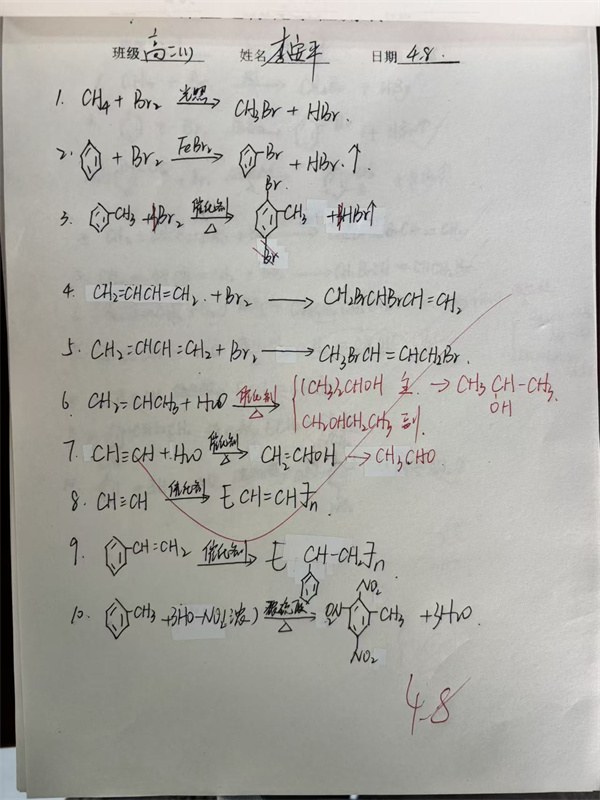 班级 高二(1) 姓名 李安平 日期 4.8.
1. CH4 + Br2 光照→ CH3Br + HBr.
2. + Br2 FeBr3→ Br + HBr.↑
3. CH3 + Br2 催化剂→ △ Br CH3 Br + HBr↑
4. CH2=CHCH=CH2 + Br2 → CH2BrCHBrCH=CH2
5. CH2=CHCH=CH2 + Br2 → CH3BrCH=CHCH2Br.
6. CH2=CHCH3 + H2O 催化剂→ △ (CH3)2CHOH 主 → CH3CH-CH3 OH
CH2OHCH2CH3 副.
7. CH≡CH + H2O 催化剂→ △ CH2=CHOH → CH3CHO
8. CH≡CH 催化剂→ [CH=CH]n.
9. CH=CH2 催化剂→ [CH-CH2]n
10. CH3 + 3HO-NO2(浓) 浓硫酸→ △ O2N NO2 CH3 NO2 + 3H2O.
4.8